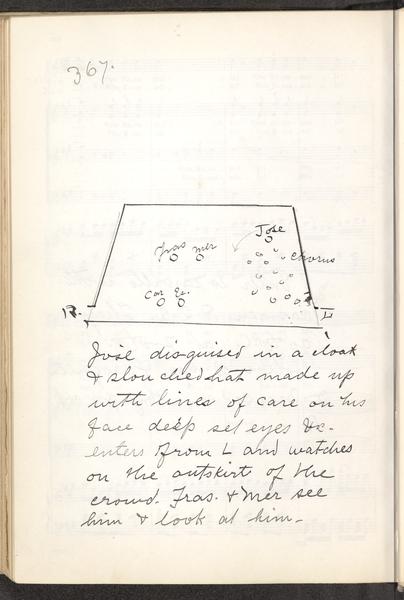 367.
José
Fras Mer
Chorus
Car Es.
R. L
José disguised in a cloak
& slouched hat made up
with lines of care on his
face deep set eyes &c-
enters from L and watches
on the outskirt of the
crowd. Fras. & Mer see
him & look at him-